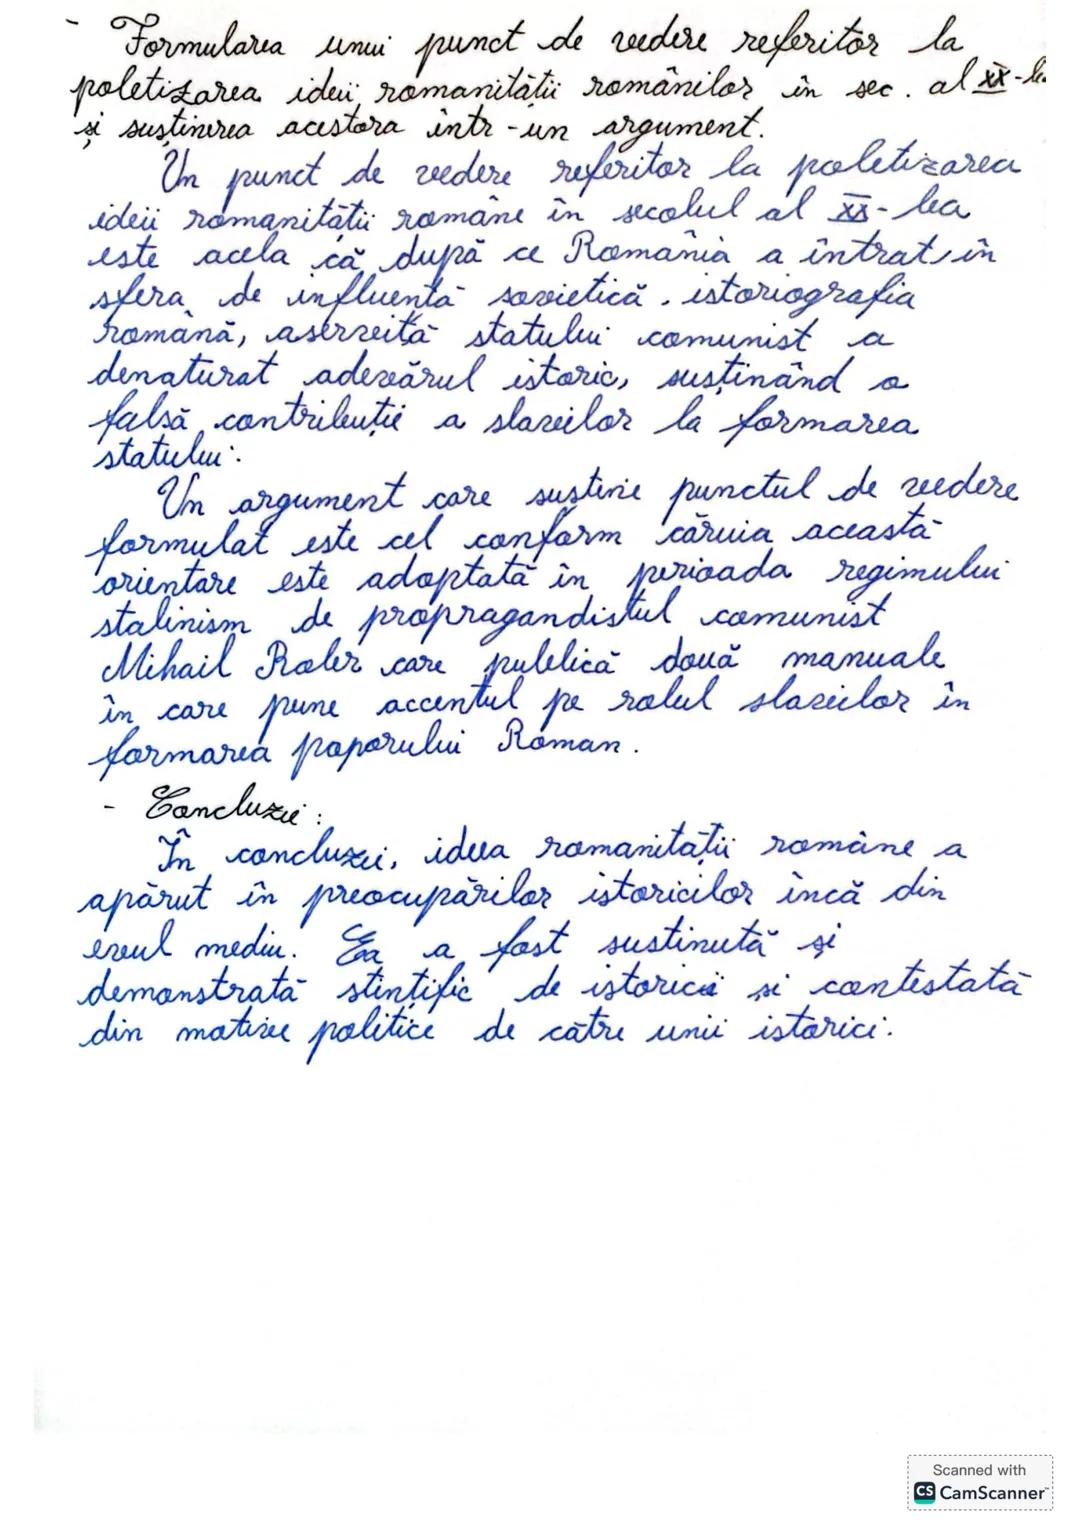 - Formularea unui punct de vedere referitor la
poletizarea ideii romanității românilor în sec. al XX-lea
și susținerea acestora într-un argument.
Un punct de vedere referitor la poletizarea
ideii romanității române în secolul al XX-lea
este acela că după ce România a intrat în
sfera de influență sovietică, istoriografia
română, aservită statului comunist a
denaturat adevărul istoric, susținând o
falsă contribuție a slavilor la formarea
statului.
Un argument care susține punctul de vedere
formulat este cel conform căruia această
orientare este adoptată în perioada regimului
stalinism de propragandistul comunist
Mihail Roler care publică două manuale
în care pune accentul pe rolul slavilor în
formarea poporului Roman.
- Concluzie:
În concluzii, ideea romanității române a
apărut în preocupărilor istoricilor încă din
evul mediu. Ea a fost sustinută și
demonstrată stintific de istorici si contestată
din motive politice de către unii istorici.
Scanned with
CS CamScanner